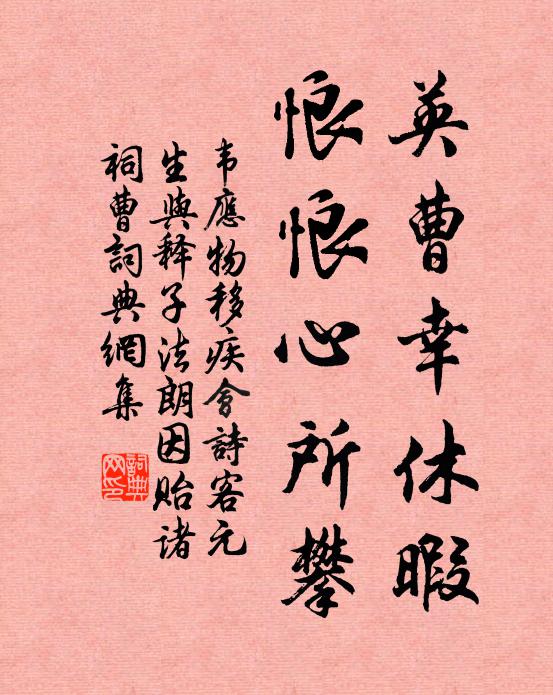 英曹幸休暇
悢悢心所攀
韦應物移疾會詩客元
生與释子法朗因貽諸
祠曹詞典網集
詞典網印